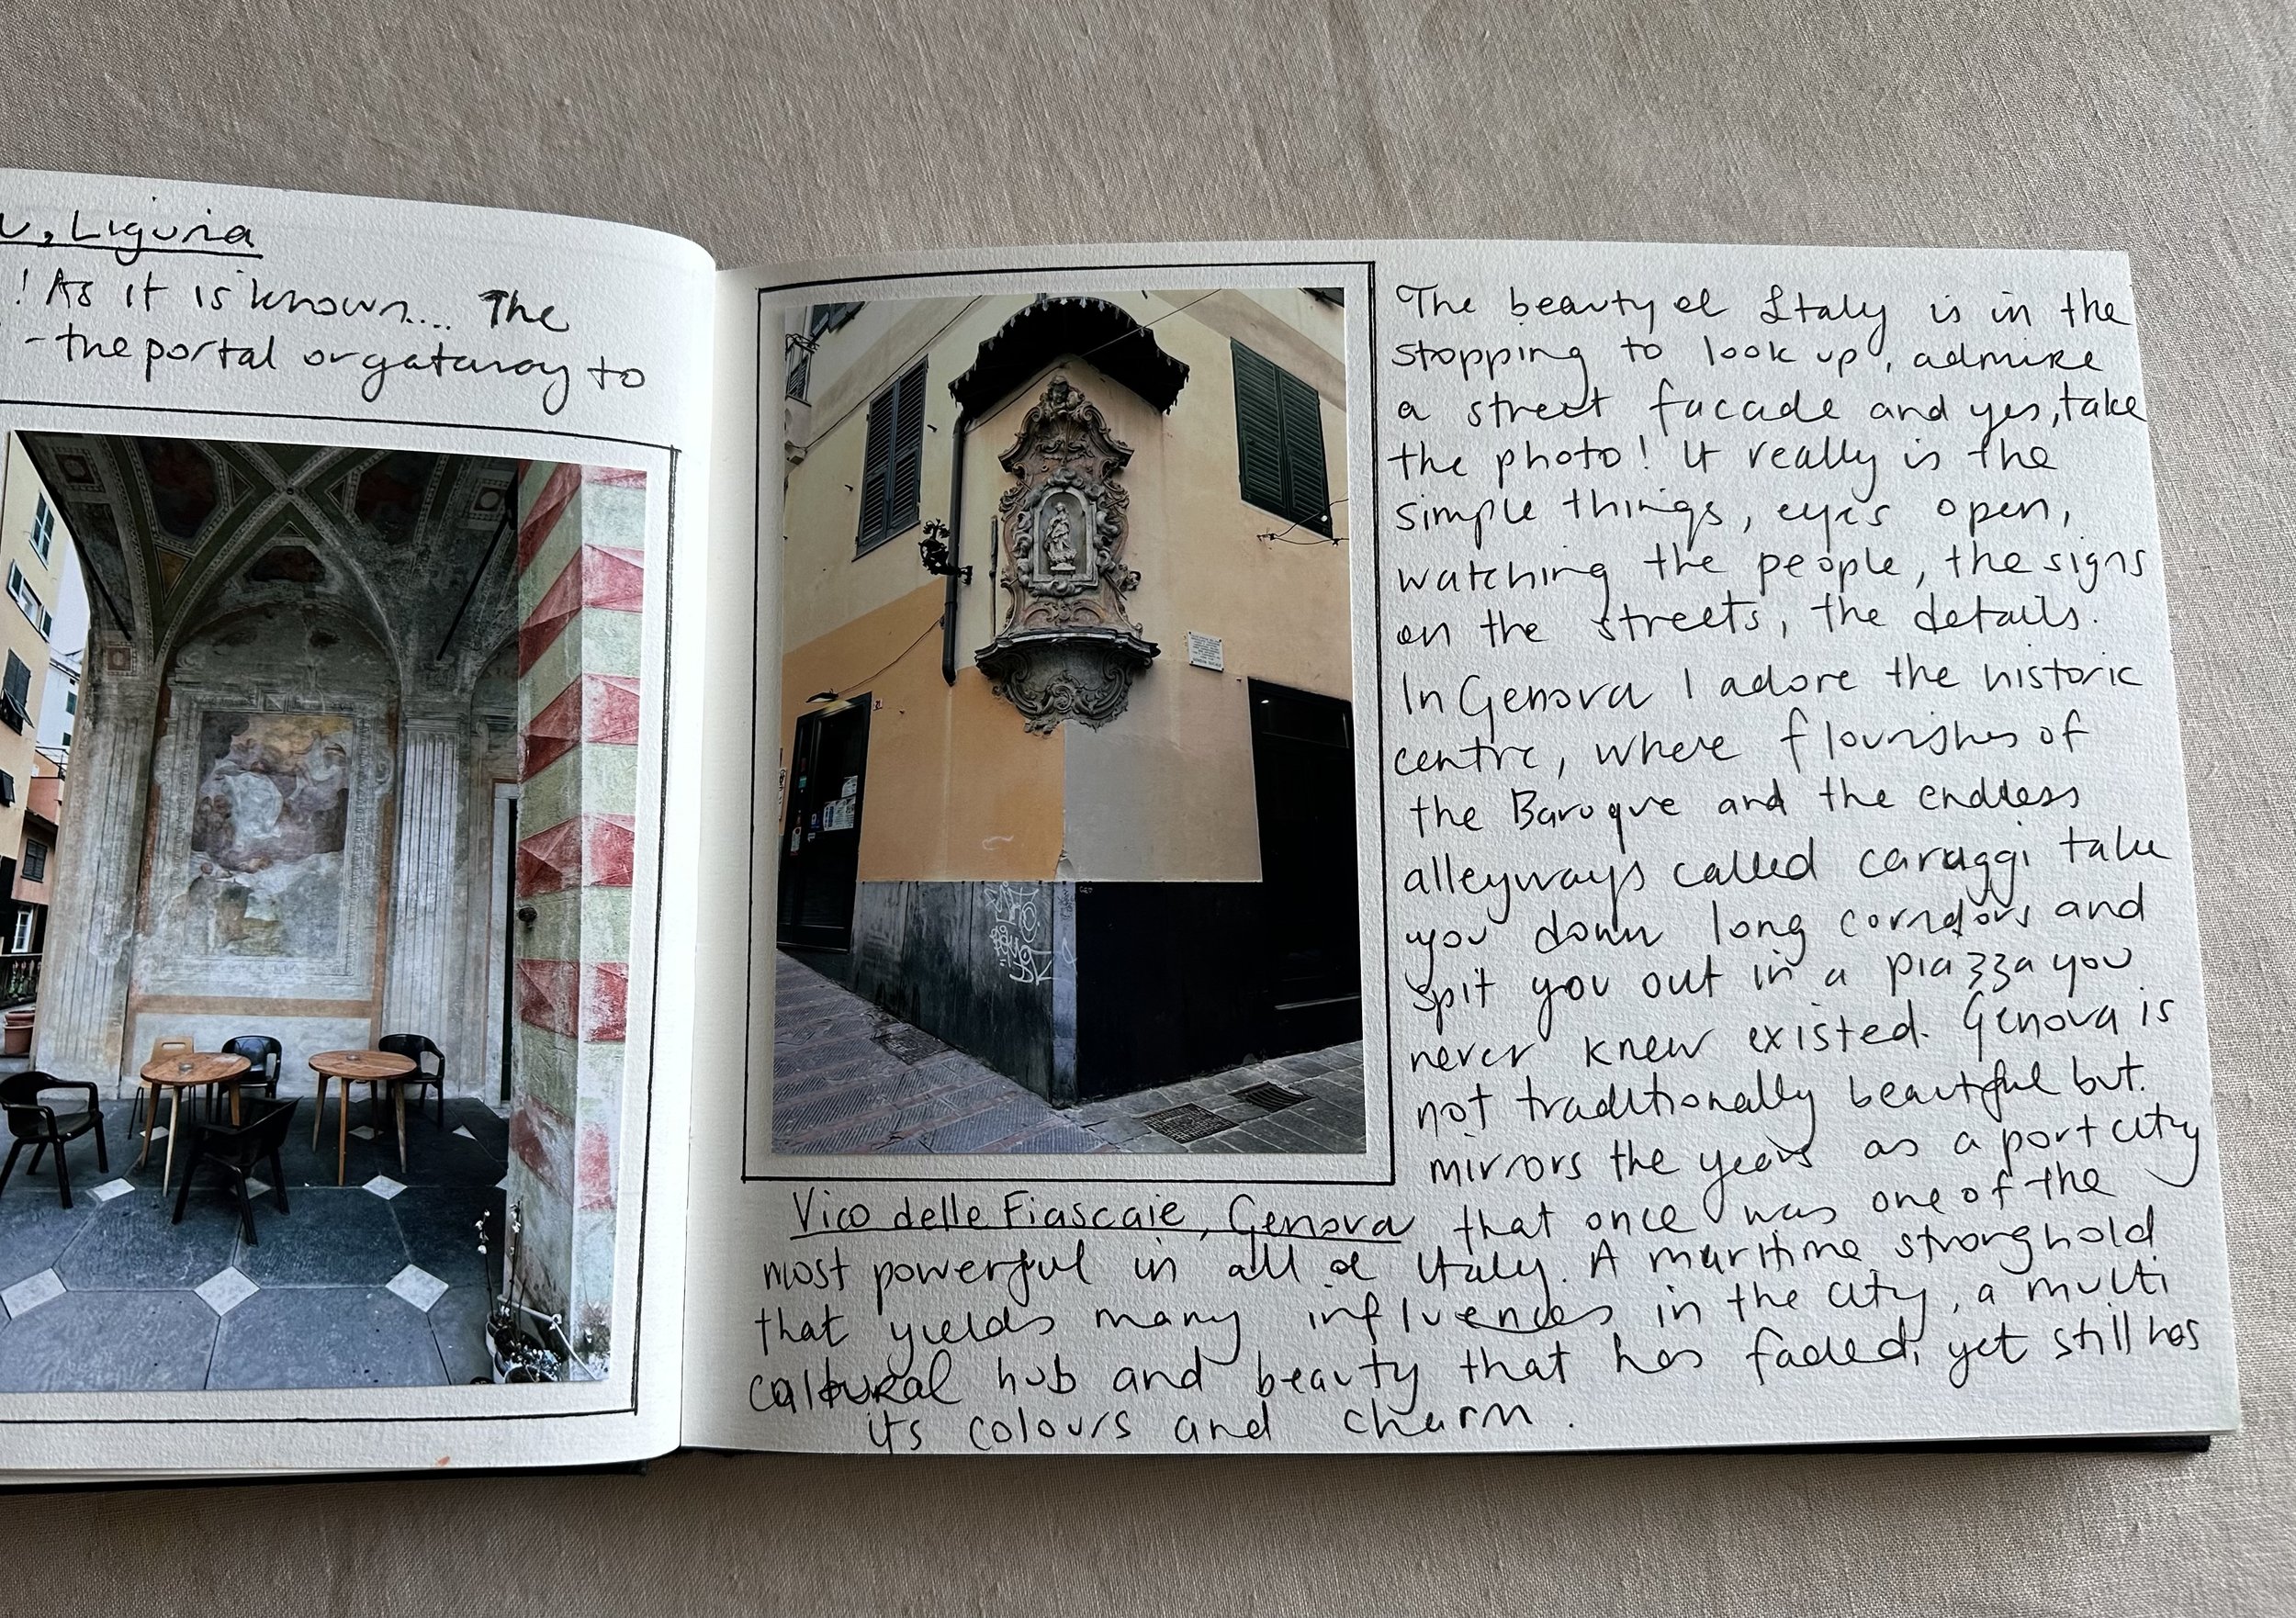 , Liguria
! As it is known.... The
- the portal or gateway to
The beauty of Italy is in the
stopping to look up, admire
a street facade and yes, take
the photo! It really is the
simple things, eyes open,
watching the people, the signs
on the streets, the details.
In Genova I adore the historic
centre, where flourishes of
the Baroque and the endless
alleyways called caruggi take
you down long corridors and
spit you out in a piazza you
never knew existed. Genova is
not traditionally beautiful but
mirrors the years as a port city
Vico delle Fiascaie, Genova
that once was one of the
most powerful in all of Italy. A maritime stronghold
that yields many influences in the city, a multi
cultural hub and beauty that has faded, yet still has
its colours and charm.